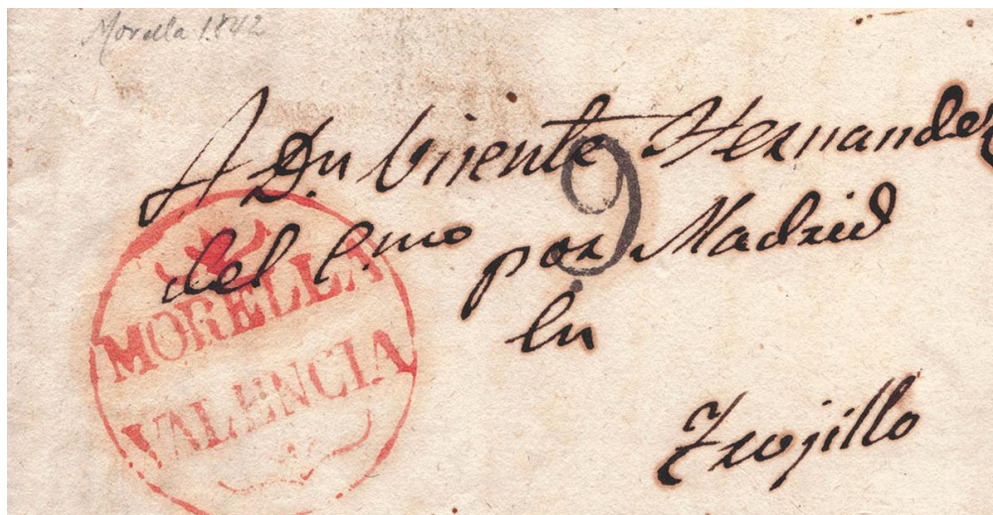 Morella 1842
A Dn Vicente Hernandez
9
del Cmo por Madrid
En
Trujillo
MORELLA
VALENCIA